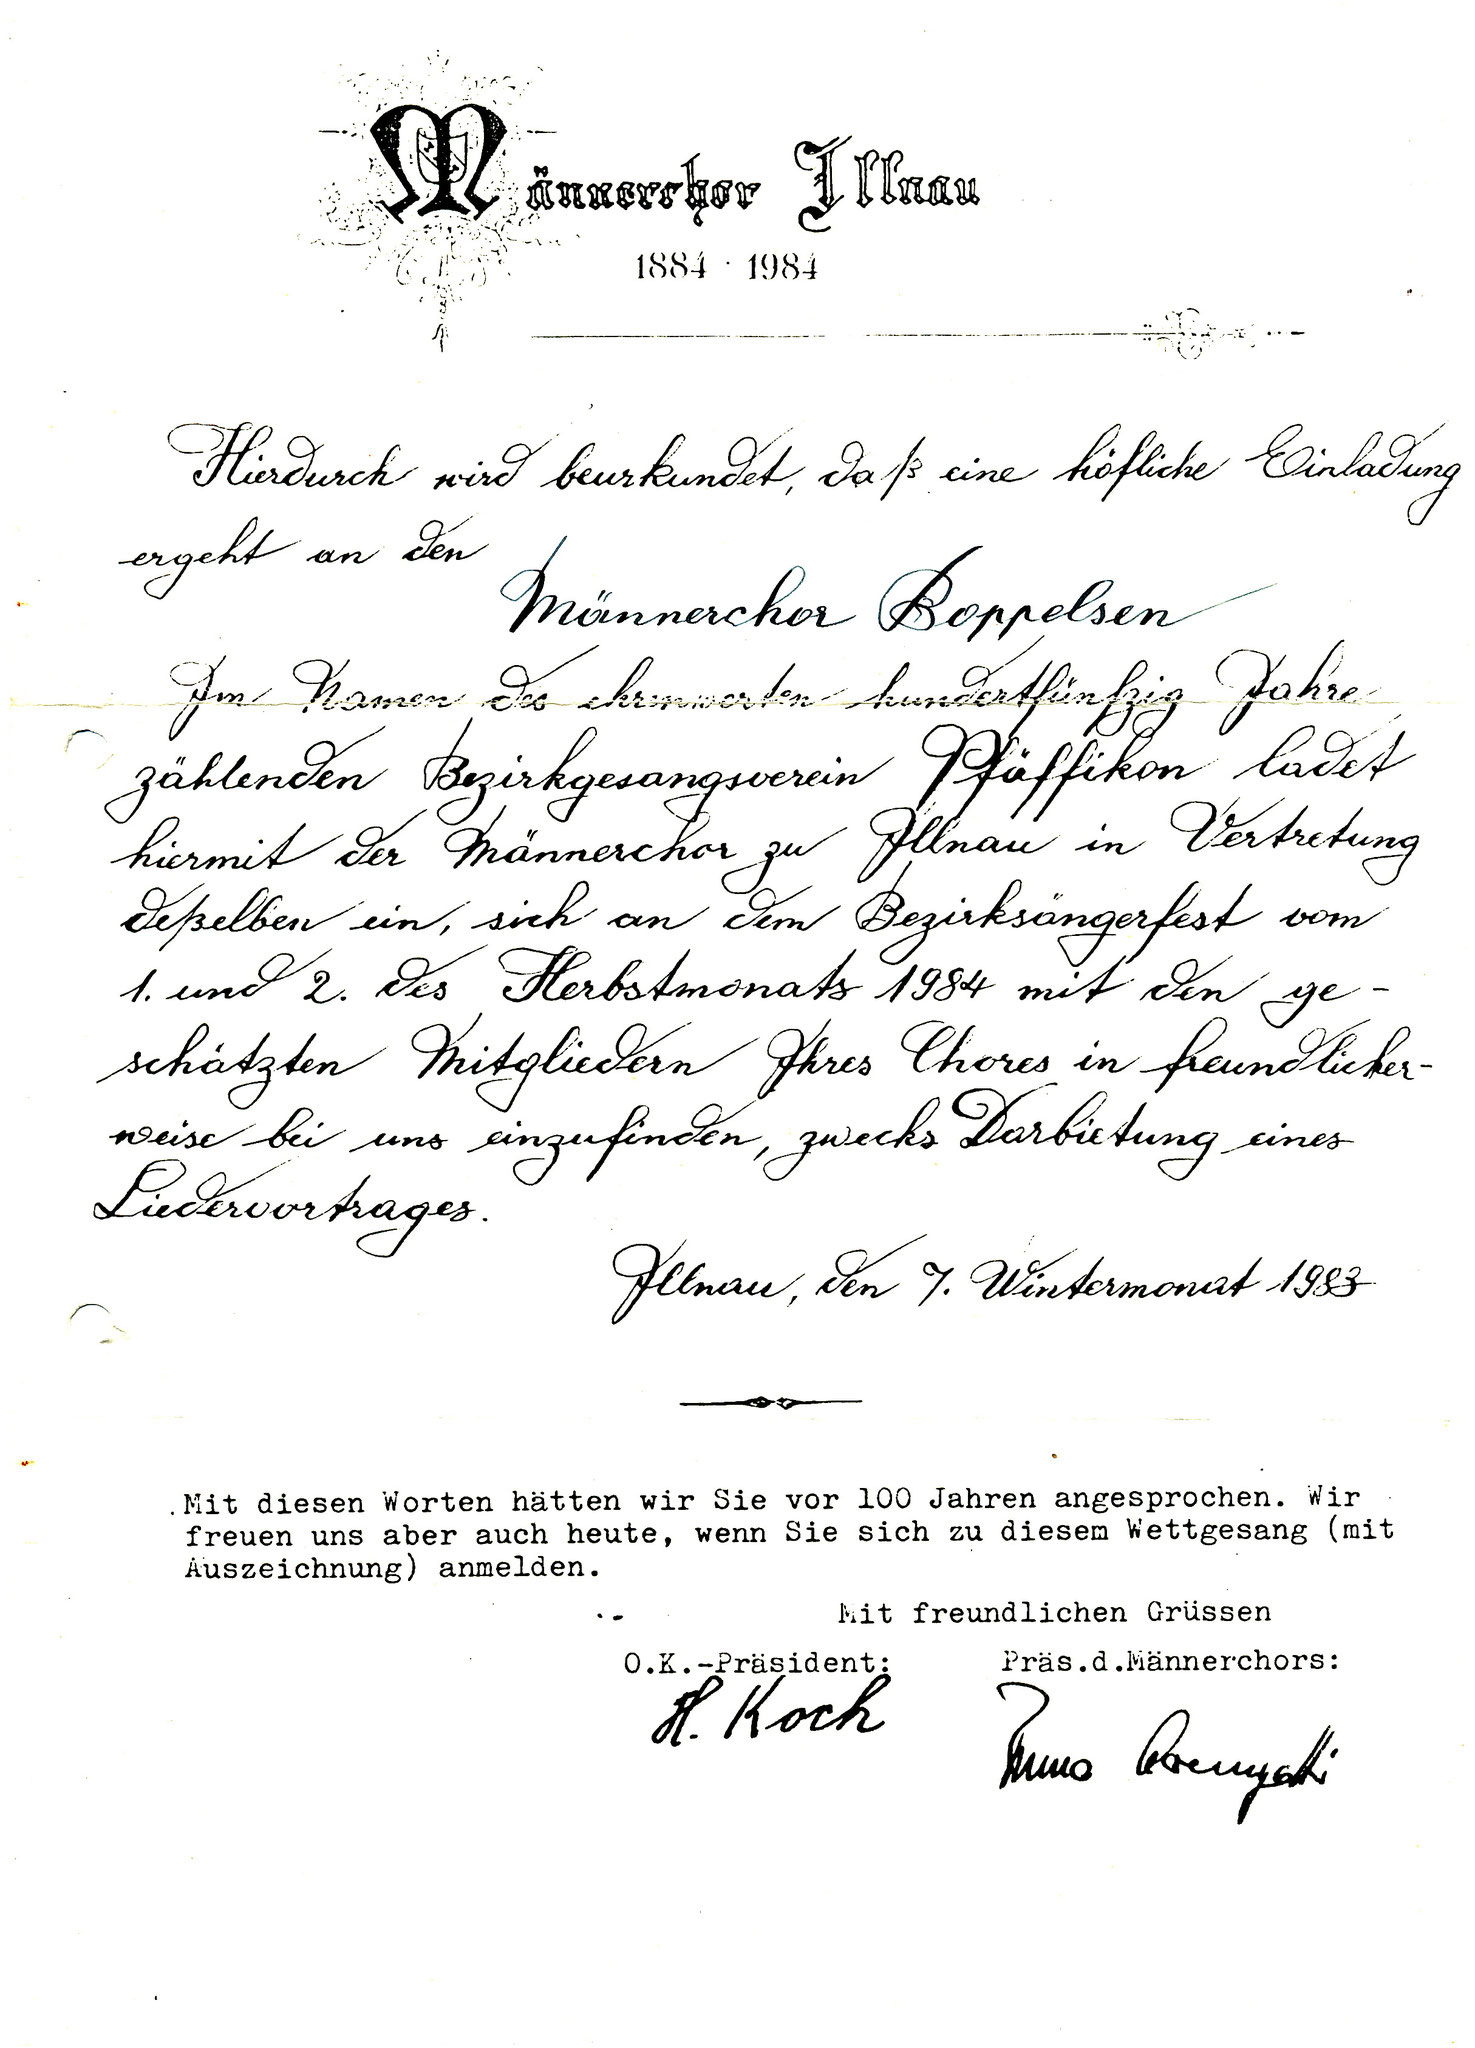 Männerchor Illnau
1884 · 1984
Hierdurch wird beurkundet, daß eine höfliche Einladung
ergeht an den
Männerchor Boppelsen
Im Namen des ehrenwerten hundertfünfzig Jahre
zählenden Bezirkgesangsverein Pfäffikon ladet
hiermit der Männerchor zu Illnau in Vertretung
deßelben ein, sich an dem Bezirksängerfest vom
1. und 2. des Herbstmonats 1984 mit den ge-
schätzten Mitgliedern Ihres Chores in freundlicher-
weise bei uns einzufinden, zwecks Darbietung eines
Liedervortrages.
Illnau, den 7. Wintermonat 1983
Mit diesen Worten hätten wir Sie vor 100 Jahren angesprochen. Wir
freuen uns aber auch heute, wenn Sie sich zu diesem Wettgesang (mit
Auszeichnung) anmelden.
Mit freundlichen Grüssen
O.K.-Präsident: Präs.d.Männerchors:
H. Koch